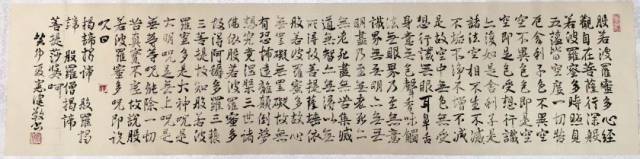 般若波羅蜜多心經
觀自在菩薩行深般
若波羅蜜多時照見
五蘊皆空度一切苦
厄舍利子色不異空
空不異色色即是空
空即是色受想行識
亦復如是舍利子是
諸法空相不生不滅
不垢不淨不增不減
是故空中無色無受
想行識無眼耳鼻舌
身意無色聲香味觸
法無眼界乃至無意
識界無無明亦無無
明盡乃至無老死亦
無老死盡無苦集滅
道無智亦無得以無
所得故菩提薩埵依
般若波羅蜜多故心
無罣礙無罣礙故無
有恐怖遠離顛倒夢
想究竟涅槃三世諸
佛依般若波羅蜜多
故得阿耨多羅三藐
三菩提故知般若波
羅蜜多是大神咒是
大明咒是無上咒是
無等等咒能除一切
苦真實不虛故說般
若波羅蜜多咒即說
咒曰
揭諦揭諦 般羅揭
諦 般羅僧揭諦
菩提莎婆訶
癸卯夏 敬書